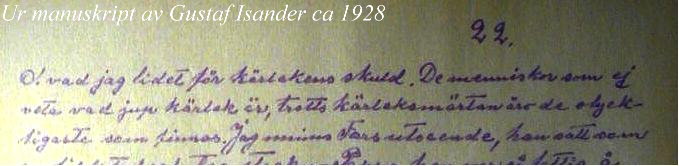 Ur manuskript av Gustaf Isander ca 1928
22.
O. vad jag lidet för kärlekens skuld. De menniskor som ej
veta vad jup kärlek är, trotts kärleksmärtan äro de olyck-
ligaste som finnas. Jag minns Fars utseende, han satt som